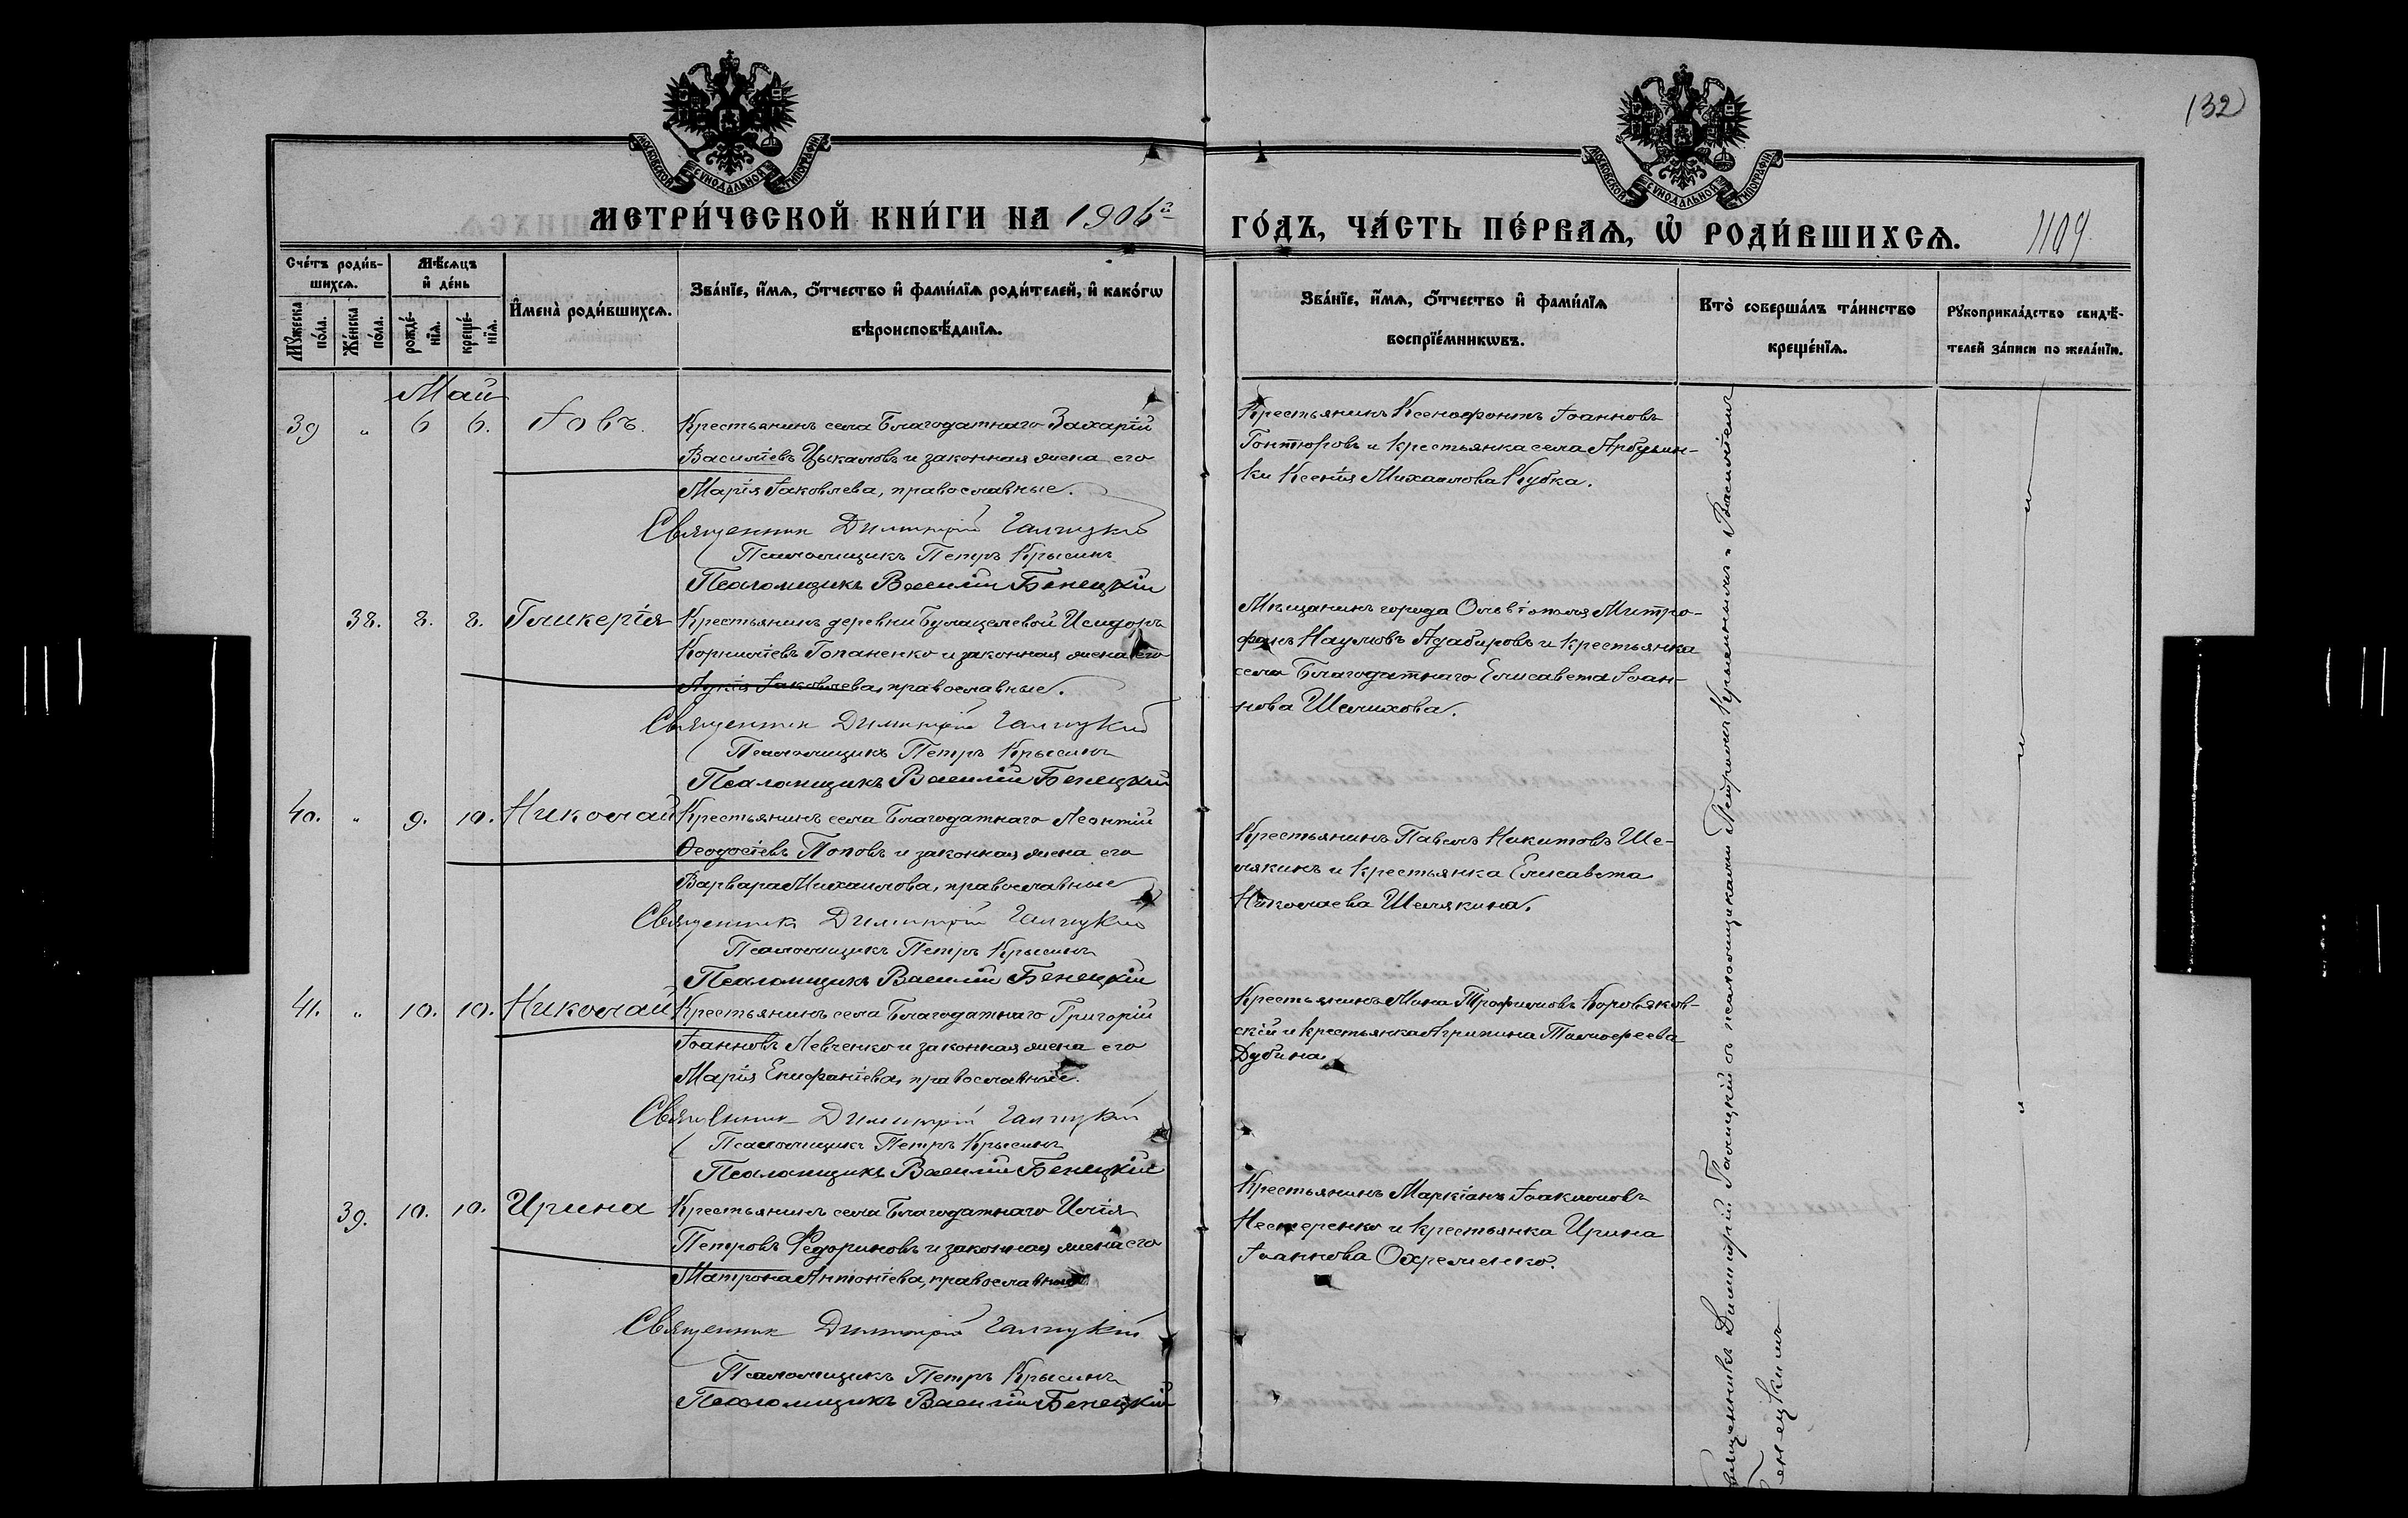 132
МОСКОВСКОЙ СѴНОДАЛЬНОЙ ТИПОГРАФІИ
МОСКОВСКОЙ СѴНОДАЛЬНОЙ ТИПОГРАФІИ
МЕТРИ́ЧЕСКОЙ КНИ́ГИ НА 1906й
ГО́ДЪ, ЧА́СТЬ ПЕ́РВАѦ, Ѡ҆ РОДИ́ВШИХСѦ. 1109
Сче́тъ роди́в-
шихсѧ.
Мꙋ́жеска по́ла.
Же́нска по́ла.
Мѣ́сѧцъ
и҆ де́нь
рожде́нїѧ.
креще́нїѧ.
И҆мена̀ роди́вшихсѧ.
Зва́нїе, и҆́мѧ, ѻ҆́тчество и҆ фами́лїѧ роди́телей, и҆ како́гѡ
вѣроисповѣ́данїѧ.
Зва́нїе, и҆́мѧ, ѻ҆́тчество и҆ фами́лїѧ
воспрїе́мникѡвъ.
Кто̀ соверша́лъ та́инство
креще́нїѧ.
Рꙋкоприкла́дство свидѣ́-
телей за́писи по жела́нїю.
Май
39 " 6 6. Іовъ. Крестьянинъ села Благодатнаго Захарій
Василіевъ Цыкаловъ и законная жена его
Марія Іаковлева, православные.
Священник Димитрій Галицкій
Псаломщикъ Петръ Крысинъ
Псаломщикъ Василій Бенецкій
Крестьянинъ Ксенофонтъ Іоанновъ
Гонтюровъ и крестьянка села Арбузин-
ки Ксенія Михаилова Кубка.
38. 8. 8. Гликерія Крестьянинъ деревни Булацелевой Исидоръ
Корниліевъ Гопаненко и законная жена его
Лукія Іаковлева, православные.
Священник Димитрій Галицкій
Псаломщикъ Петръ Крысинъ
Псаломщикъ Василій Бенецкій
Мѣщанинъ города Ольвіополя Митро-
фанъ Наумовъ Адабировъ и крестьянка
села Благодатнаго Елисавета Іоан-
нова Шелихова.
40. " 9. 10. Николай Крестьянинъ села Благодатнаго Леонтій
Ѳеодосіевъ Поповъ и законная жена его
Варвара Михаилова, православные
Священник Димитрій Галицкій
Псаломщикъ Петръ Крысинъ
Псаломщикъ Василій Бенецкій
Крестьянинъ Павелъ Никитовъ Ше-
лякинъ и крестьянка Елисавета
Николаева Шелякина.
41. " 10. 10. Николай Крестьянинъ села Благодатнаго Григорій
Іоанновъ Левченко и законная жена его
Марія Епифаніева, православные.
Священник Димитрій Галицкій
Псаломщикъ Петръ Крысинъ
Псаломщикъ Василій Бенецкій
Крестьянинъ Мина Трофимовъ Коровяков-
скій и крестьянка Агрипина Тимофеева
Дубина.
39. 10. 10. Ирина Крестьянинъ села Благодатнаго Илія
Петровъ Федориновъ и законная жена его
Матрона Антоніева, православные
Священник Димитрій Галицкій
Псаломщикъ Петръ Крысинъ
Псаломщикъ Василій Бенецкій
Крестьянинъ Маркіанъ Іоакимовъ
Нестеренко и крестьянка Ирина
Іоаннова Охременко.
Священникъ Димитрій Галицкій съ псаломщиками Петромъ Крысинымъ и Василіемъ
Бенецкимъ